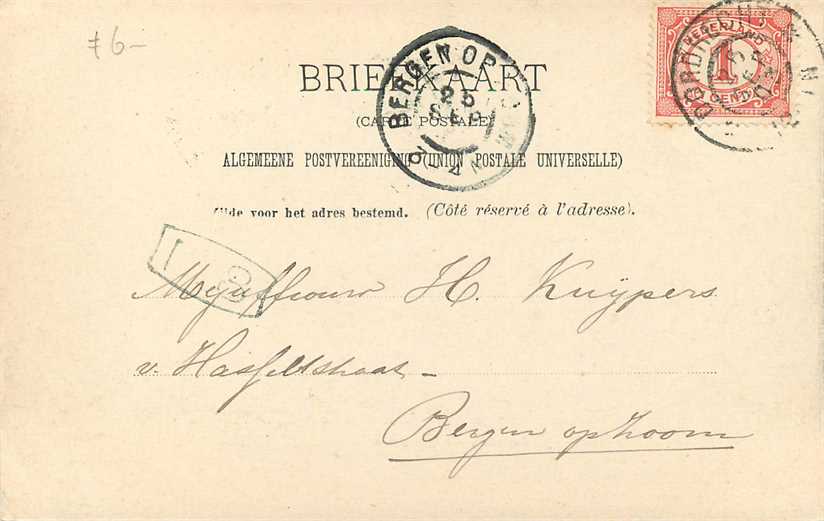 f6-
NEDERLAND
1
CENT
DORDRECHT
BERGEN OP
25
SEP
BRIEFKAART
(CARTE POSTALE)
ALGEMEENE POSTVEREENIGING (UNION POSTALE UNIVERSELLE)
Zijde voor het adres bestemd. (Côté réservé à l'adresse).
Mejuffrouw H. Kuÿpers
v. Hasfeltstraat -
Bergen op Zoom